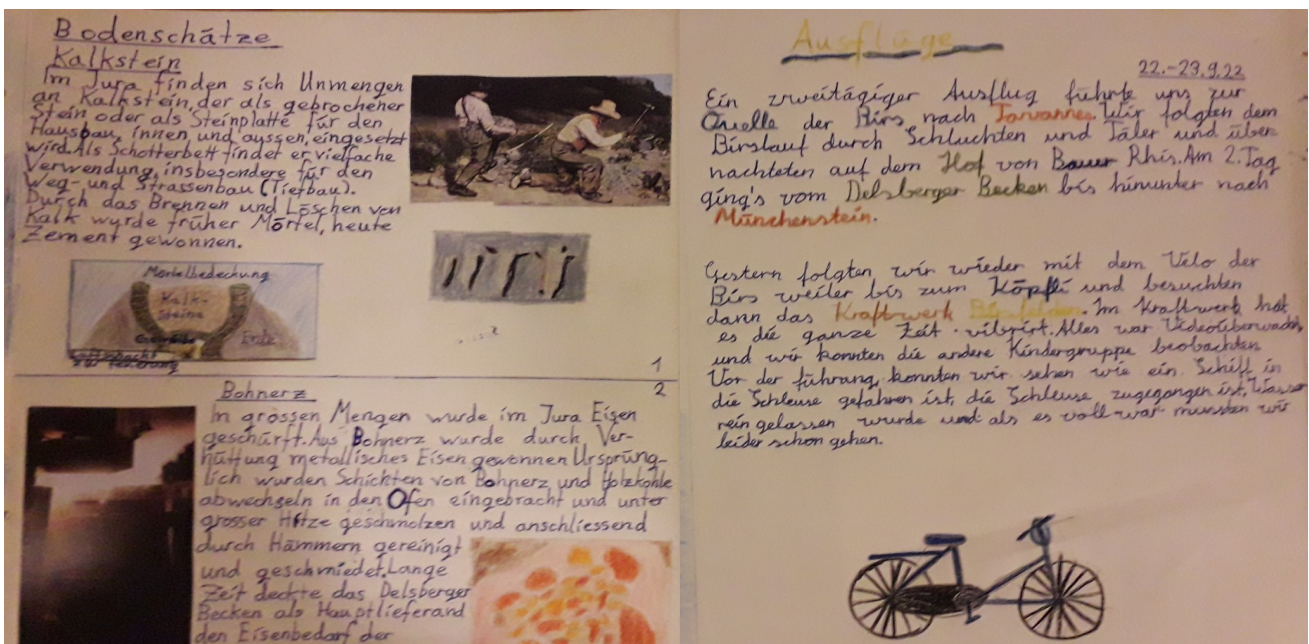 Bodenschätze
Kalkstein
Im Jura finden sich Unmengen
an Kalkstein, der als gebrochener
Stein oder als Steinplatte für den
Hausbau, innen und aussen, eingesetzt
wird. Als Schotterbett findet er vielfache
Verwendung, insbesondere für den
Weg- und Strassenbau (Tiefbau).
Durch das Brennen und Löschen von
Kalk wurde früher Mörtel, heute
Zement gewonnen.
Mörtelbedeckung
Kalk-
Steine
Erde
zur Feuerung
1
2
Bohnerz
In grössen Mengen wurde im Jura Eisen
geschürft. Aus Bohnerz wurde durch Ver-
hüttung metallisches Eisen gewonnen Ursprüng-
lich wurden Schichten von Bohnerz und Holzkohle
abwechseln in den Ofen eingebracht und unter
grosser Hitze geschmolzen und anschliessend
durch Hämmern gereinigt
und geschmiedet. Lange
Zeit deckte das Delsberger
Becken als Hauptlieferand
den Eisenbedarf der
Ausfläge
22.-23.9.22
Ein zweitägiger Ausflug führte uns zur
Quelle der Birs nach Tavannes. Wir folgten dem
Birslauf durch Schluchten und Täler und über
nachteten auf dem Hof von Bauer Rhis. Am 2. Tag
ging's vom Delsberger Becken bis hinunter nach
Münchenstein.
Gestern folgten wir wieder mit dem Velo der
Birs weiter bis zum Köpfli und besuchten
dann das Kraftwerk Birsfelden. Im Kraftwerk hat
es die ganze Zeit vibriert. Alles war Videoüberwacht
und wir konnten die andere Kindergruppe beobachten
Vor der führung, konnten wir sehen wie ein Schiff in
die Schleuse gefahren ist, die Schleuse zugegangen ist, Wasser
rein gelassen wurde und als es voll war mussten wir
leider schon gehen.